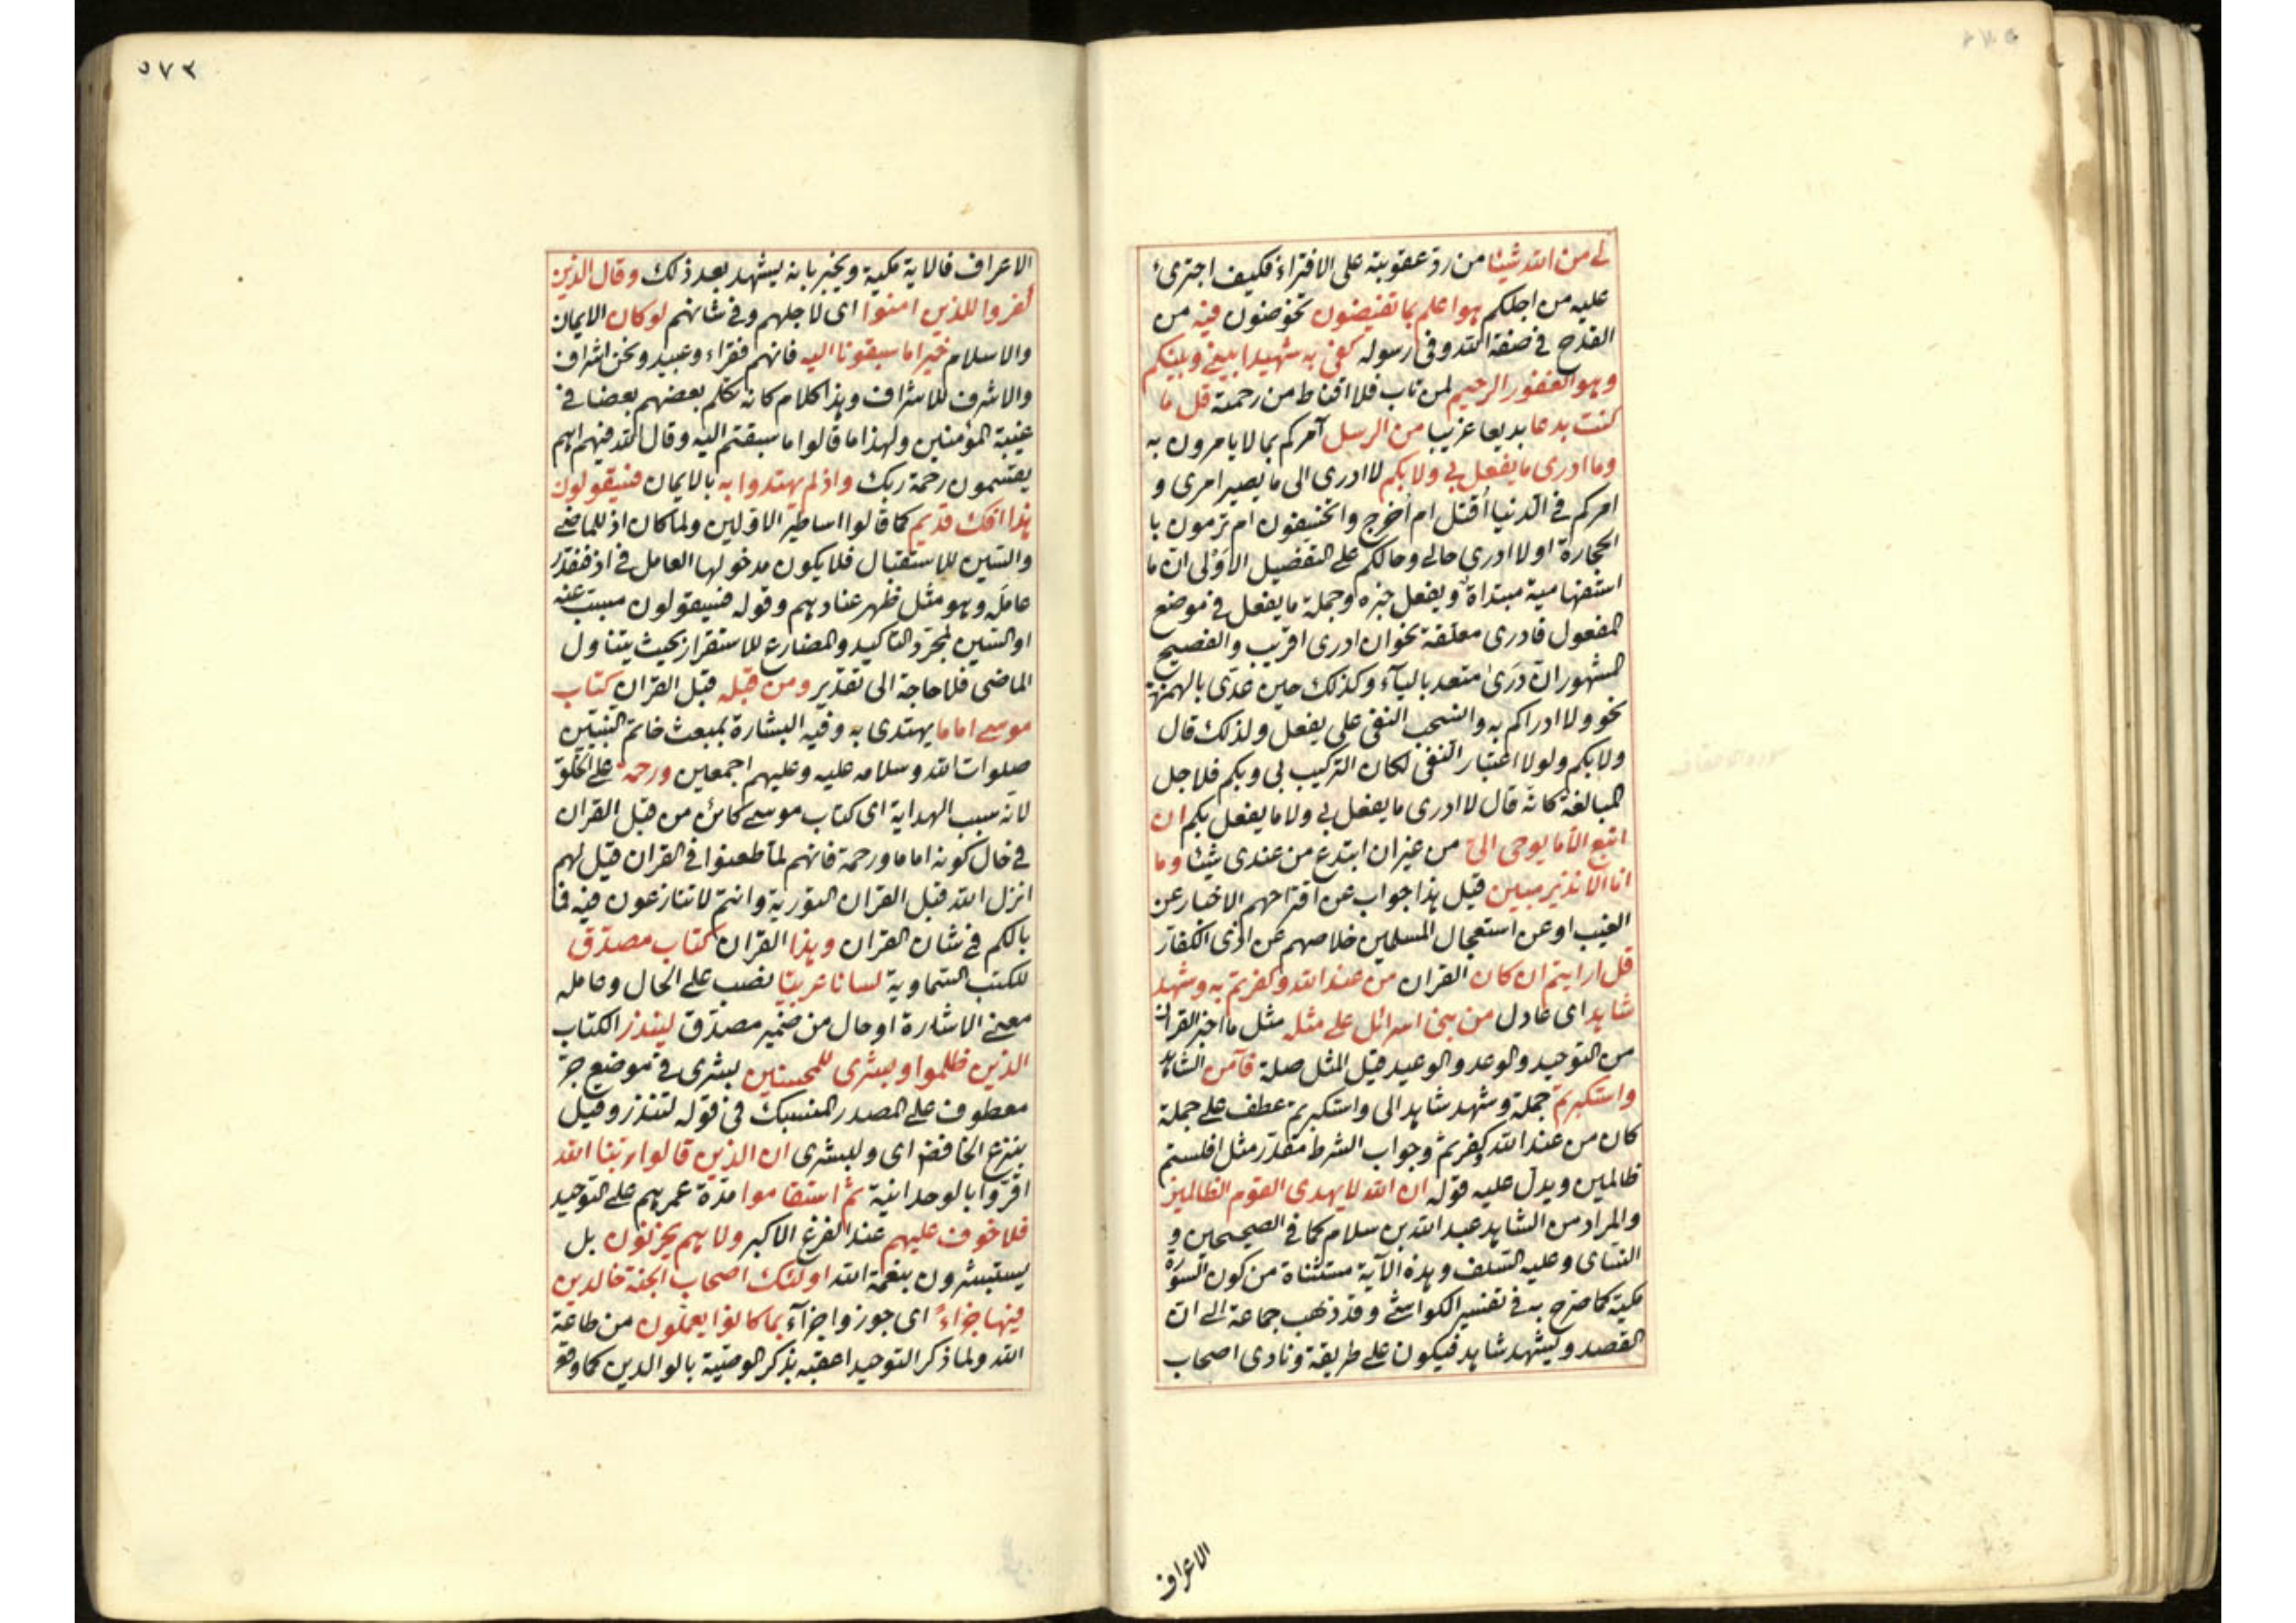 لى من الله شيئا من رد عقوبته على الافتراء فكيف اجترئ
عليه من اجلكم هو اعلم بما تفيضون تخوضون فيه من
القدح في صفة الله وفي رسوله كفى به شهيدا بيني وبينكم
وهو الغفور الرحيم لمن تاب فلا اقناط من رحمته قل ما
كنت بدعا بديعا غريبا من الرسل آمركم بما لا يامرون به
وما ادرى ما يفعل بي ولا بكم لا ادرى الى ما يصير امرى و
امركم في الدنيا أقتل ام أخرج وا تخسفون ام ترمون با
الحجارة او لا ادرى حالي وحالكم على التفضيل الاولى ان ما
استفهامية مبتداة ويفعل خبره وجملة ما يفعل في موضع
المفعول فادرى معلقة نحو ان ادرى اقريب والفصيح
المشهور ان درى متعد بالباء وكذلك حين عدى بالهمزة
نحو ولا ادراكم به وانسحب النفى على يفعل ولذلك قال
ولا بكم ولولا اعتبار النفى لكان التركيب بى وبكم فلاجل
المبالغة كانه قال لا ادرى ما يفعل بي ولا ما يفعل بكم ان
اتبع الا ما يوحى الى من غير ان ابتدع من عندى شيئا وما
انا الا نذير مبين قيل هذا جواب عن اقتراحهم الاخبار عن
الغيب او عن استعجال المسلمين خلاصهم عن اذى الكفار
قل ارايتم ان كان القران من عند الله وكفرتم به وشهد
شاهد اى عادل من بنى اسرائل على مثله مثل ما اخبر القران
من التوحيد والوعد والوعيد قيل المثل صلة فآمن الشاهد
واستكبرتم جملة وشهد شاهد الى واستكبرتم عطف على جملة
كان من عند الله وكفرتم وجواب الشرط مقدر مثل افلستم
ظالمين ويدل عليه قوله ان الله لا يهدى القوم الظالمين
والمراد من الشاهد عبد الله بن سلام كما في الصحيحين و
النساى وعليه السلف وهذه الآية مستثناة من كون السورة
مكية كما صرح به في تفسير الكواشى وقد ذهب جماعة الى ان
القصد وليشهد شاهد فيكون على طريقة ونادى اصحاب
الاعراف
٥٧٣
الاعراف فالاية مكية ويخبر بانه يشهد بعد ذلك وقال الذين
كفروا للذين امنوا اى لاجلهم وفي شانهم لو كان الايمان
والاسلام خيرا ما سبقونا اليه فانهم فقراء وعبيد ونحن اشراف
والاشرف للاشراف وهذا كلام كانه تكلم بعضهم بعضا في
غيبة المؤمنين ولهذا ما قالوا ما سبقتم اليه وقال الله فيهم اهم
يقسمون رحمة ربك واذ لم يهتدوا به بالايمان فسيقولون
هذا افك قديم كما قالوا اساطير الاولين ولما كان اذ للماضى
والسين للاستقبال فلا يكون مدخولها العامل في اذ فقدر
عامله وهو مثل ظهر عنادهم وقوله فسيقولون مسبب عنه
او السين لمجرد التاكيد والمضارع للاستقرار بحيث يتناول
الماضى فلا حاجة الى تقدير ومن قبله قبل القران كتاب
موسى اماما يهتدى به وفيه البشارة بمبعث خاتم النبيين
صلوات الله وسلامه عليه وعليهم اجمعين ورحمة على الخلق
لانه سبب الهداية اى كتاب موسى كائن من قبل القران
في حال كونه اماما ورحمة فانهم لما طعنوا في القران قيل لهم
انزل الله قبل القران التورية وانتم لا تنازعون فيه فما
بالكم في شان القران وهذا القران كتاب مصدق
للكتب السماوية لسانا عربيا نصب على الحال وعامله
معنى الاشارة او حال من ضمير مصدق لينذر الكتاب
الذين ظلموا وبشرى للمحسنين بشرى في موضع جر
معطوف على المصدر المنسبك في قوله لتنذر وقيل
بنزع الخافض اى ولبشرى ان الذين قالوا ربنا الله
اقروا بالوحدانية ثم استقاموا مدة عمرهم على التوحيد
فلا خوف عليهم عند الفزع الاكبر ولا هم يحزنون بل
يستبشرون بنعمة الله اولئك اصحاب الجنة خالدين
فيها جزاء اى جوزوا جزآء بما كانوا يعملون من طاعة
الله ولما ذكر التوحيد اعقبه بذكر الوصية بالوالدين كما وقع